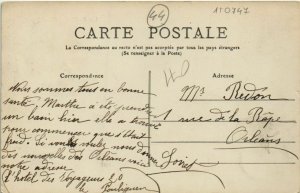 44
110747
CARTE POSTALE
La Correspondance au recto n'est pas acceptée par tous les pays étrangers
(Se renseigner à la Poste)
Correspondance
Adresse
Nous sommes tous en bonne
santé, Marthe a été prendre
un bain hier elle a trouvé
pour commencer que c'était
froid. Si vous voulez nous donner
des nouvelles d'Orléans voici
notre adresse
l'hôtel des Voyageurs
le Pouliguen
Redon
1 rue de la
Orléans
Loiret